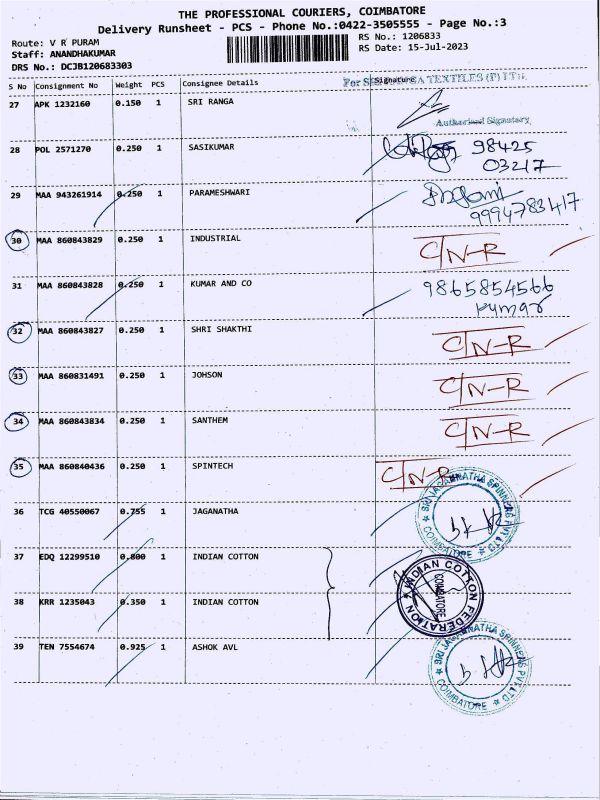 THE PROFESSIONAL COURIERS, COIMBATORE
Delivery Runsheet - PCS - Phone No.:0422-3505555 - Page No.:3
Route: V R PURAM
RS No.: 1206833
Staff: ANANDHAKUMAR
RS Date: 15-Jul-2023
DRS No.: DCJB120683303
S No Consignment No Weight PCS Consignee Details Signature
For TEXTILES (P) LTD.
27 APK 1232160 0.150 1 SRI RANGA
Authorised Signatory
28 POL 2571270 0.250 1 SASIKUMAR 98425
03217
29 MAA 943261914 0.250 1 PARAMESHWARI
9994783417
30 MAA 860843829 0.250 1 INDUSTRIAL C/N-R
31 MAA 860843828 0.250 1 KUMAR AND CO 9865854566
Kumar
32 MAA 860843827 0.250 1 SHRI SHAKTHI C/N-R
33 MAA 860831491 0.250 1 JOHSON C/N-R
34 MAA 860843834 0.250 1 SANTHEM C/N-R
35 MAA 860840436 0.250 1 SPINTECH C/N-R
36 TCG 40550067 0.755 1 JAGANATHA
SRI JAGANNATHA SPINNERS PVT LTD
COIMBATORE
37 EDQ 12299510 0.800 1 INDIAN COTTON
INDIAN COTTON FEDERATION
COIMBATORE
38 KRR 1235043 0.350 1 INDIAN COTTON
39 TEN 7554674 0.925 1 ASHOK AVL
SRI JAGANNATHA SPINNERS PVT LTD
COIMBATORE